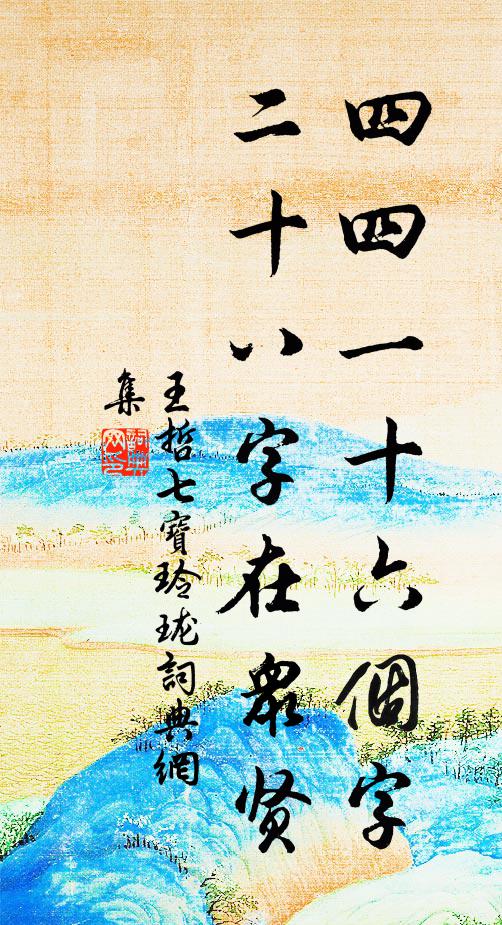 四四一十六個字
二十八字在衆贤
王哲七寶玲瓏詞典網
集